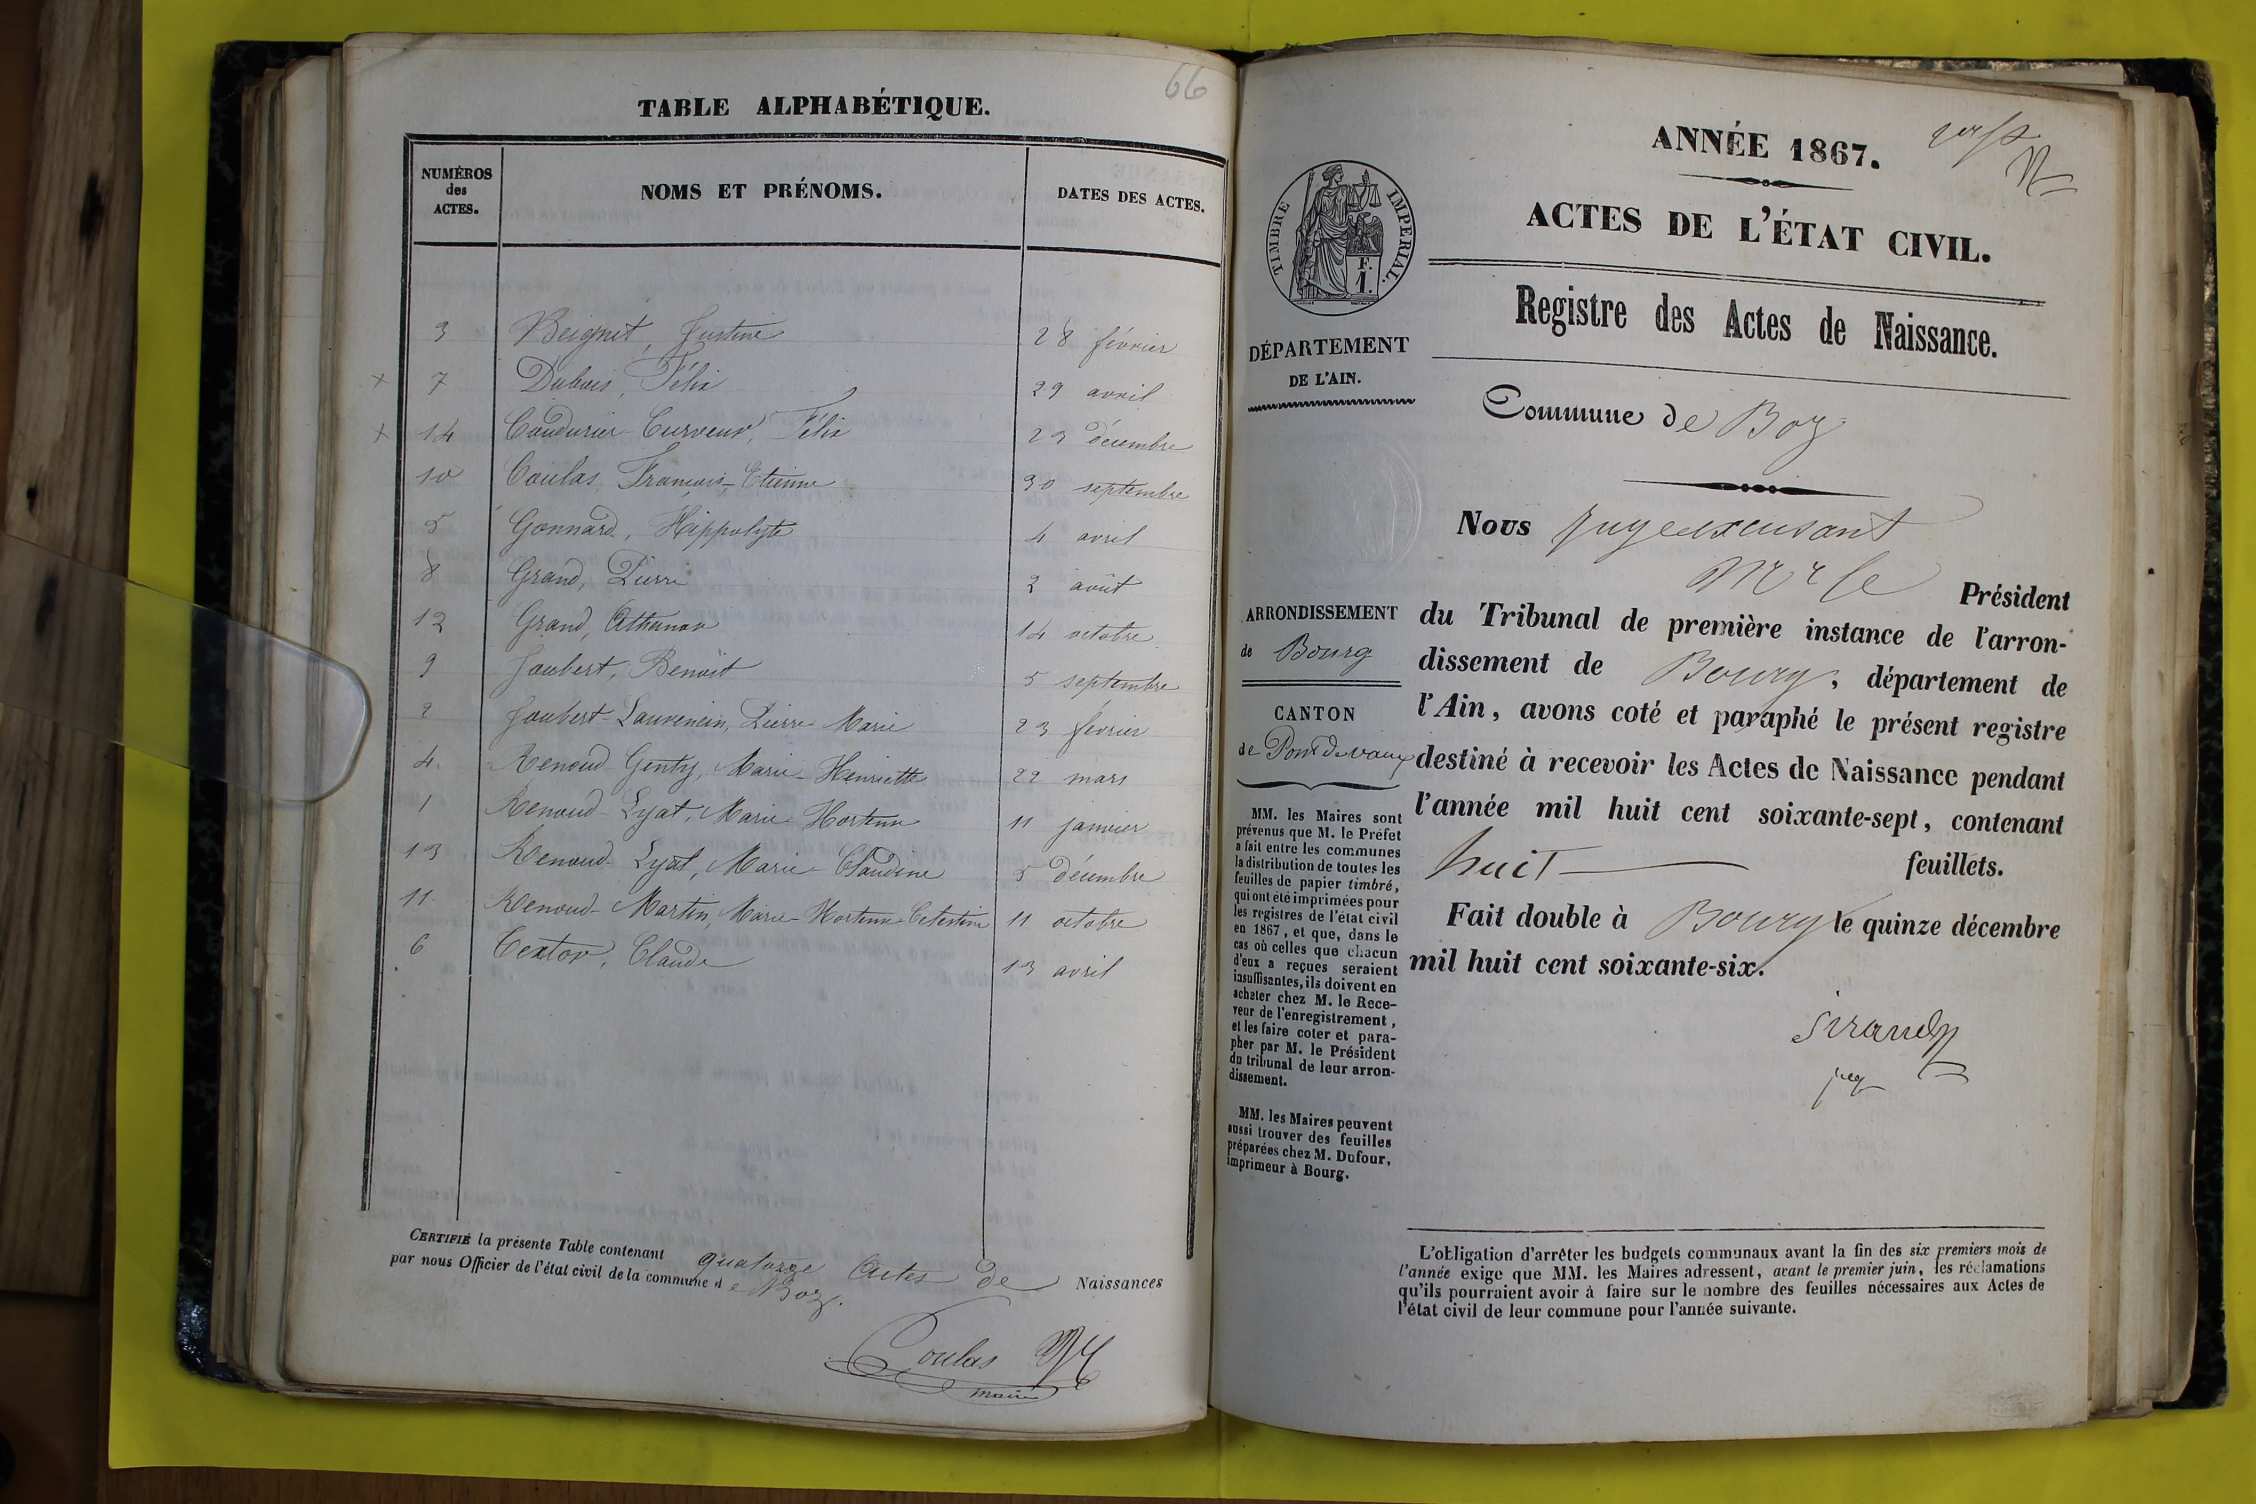 66
TABLE ALPHABÉTIQUE.
NUMÉROS des ACTES. NOMS ET PRÉNOMS. DATES DES ACTES.
3 Beignet, Justine 28 février
x 7 Dubois, Félix 29 avril
x 14 Coudurier-Curveur, Félix 23 décembre
10 Coulas, François-Etienne 30 septembre
5 Gonnard, Hippolyte 4 avril
8 Grand, Pierre 2 août
12 Grand, 14 octobre
9 Joubert, Benoît 5 septembre
2 Joubert-Lauvencin, Pierre-Marie 23 février
4. Renoud-Genty, Marie-Henriette 22 mars
1 Renoud-Lyat, Marie-Hortense 11 janvier
13 Renoud-Lyat, Marie-Claudine 5 décembre
11. Renoud-Martin, Marie-Hortense-Celestine 11 octobre
6 Textor, Claude 13 avril
CERTIFIÉ la présente Table contenant quatorze Actes de Naissances
par nous Officier de l'état civil de la commune de Boz.
Coulas
maire
ANNÉE 1867.
ACTES DE L'ÉTAT CIVIL.
TIMBRE IMPERIAL.
F.
1.
Registre des Actes de Naissance.
DÉPARTEMENT
DE L'AIN.
Commune de Boz
Nous Juge excusant
Mr le Président
ARRONDISSEMENT
de Bourg
CANTON
de Pont de vaux
du Tribunal de première instance de l'arron-
dissement de Bourg, département de
l'Ain, avons coté et paraphé le présent registre
destiné à recevoir les Actes de Naissance pendant
l'année mil huit cent soixante-sept, contenant
huit feuillets.
Fait double à Bourg le quinze décembre
mil huit cent soixante-six.
MM. les Maires sont
prévenus que M. le Préfet
a fait entre les communes
la distribution de toutes les
feuilles de papier timbré,
qui ont été imprimées pour
les registres de l'état civil
en 1867, et que, dans le
cas où celles que chacun
d'eux a reçues seraient
insuffisantes, ils doivent en
acheter chez M. le Rece-
veur de l'enregistrement,
et les faire coter et para-
pher par M. le Président
du tribunal de leur arron-
dissement.
MM. les Maires peuvent
aussi trouver des feuilles
préparées chez M. Dufour,
imprimeur à Bourg.
L'obligation d'arrêter les budgets communaux avant la fin des six premiers mois de
l'année exige que MM. les Maires adressent, avant le premier juin, les réclamations
qu'ils pourraient avoir à faire sur le nombre des feuilles nécessaires aux Actes de
l'état civil de leur commune pour l'année suivante.